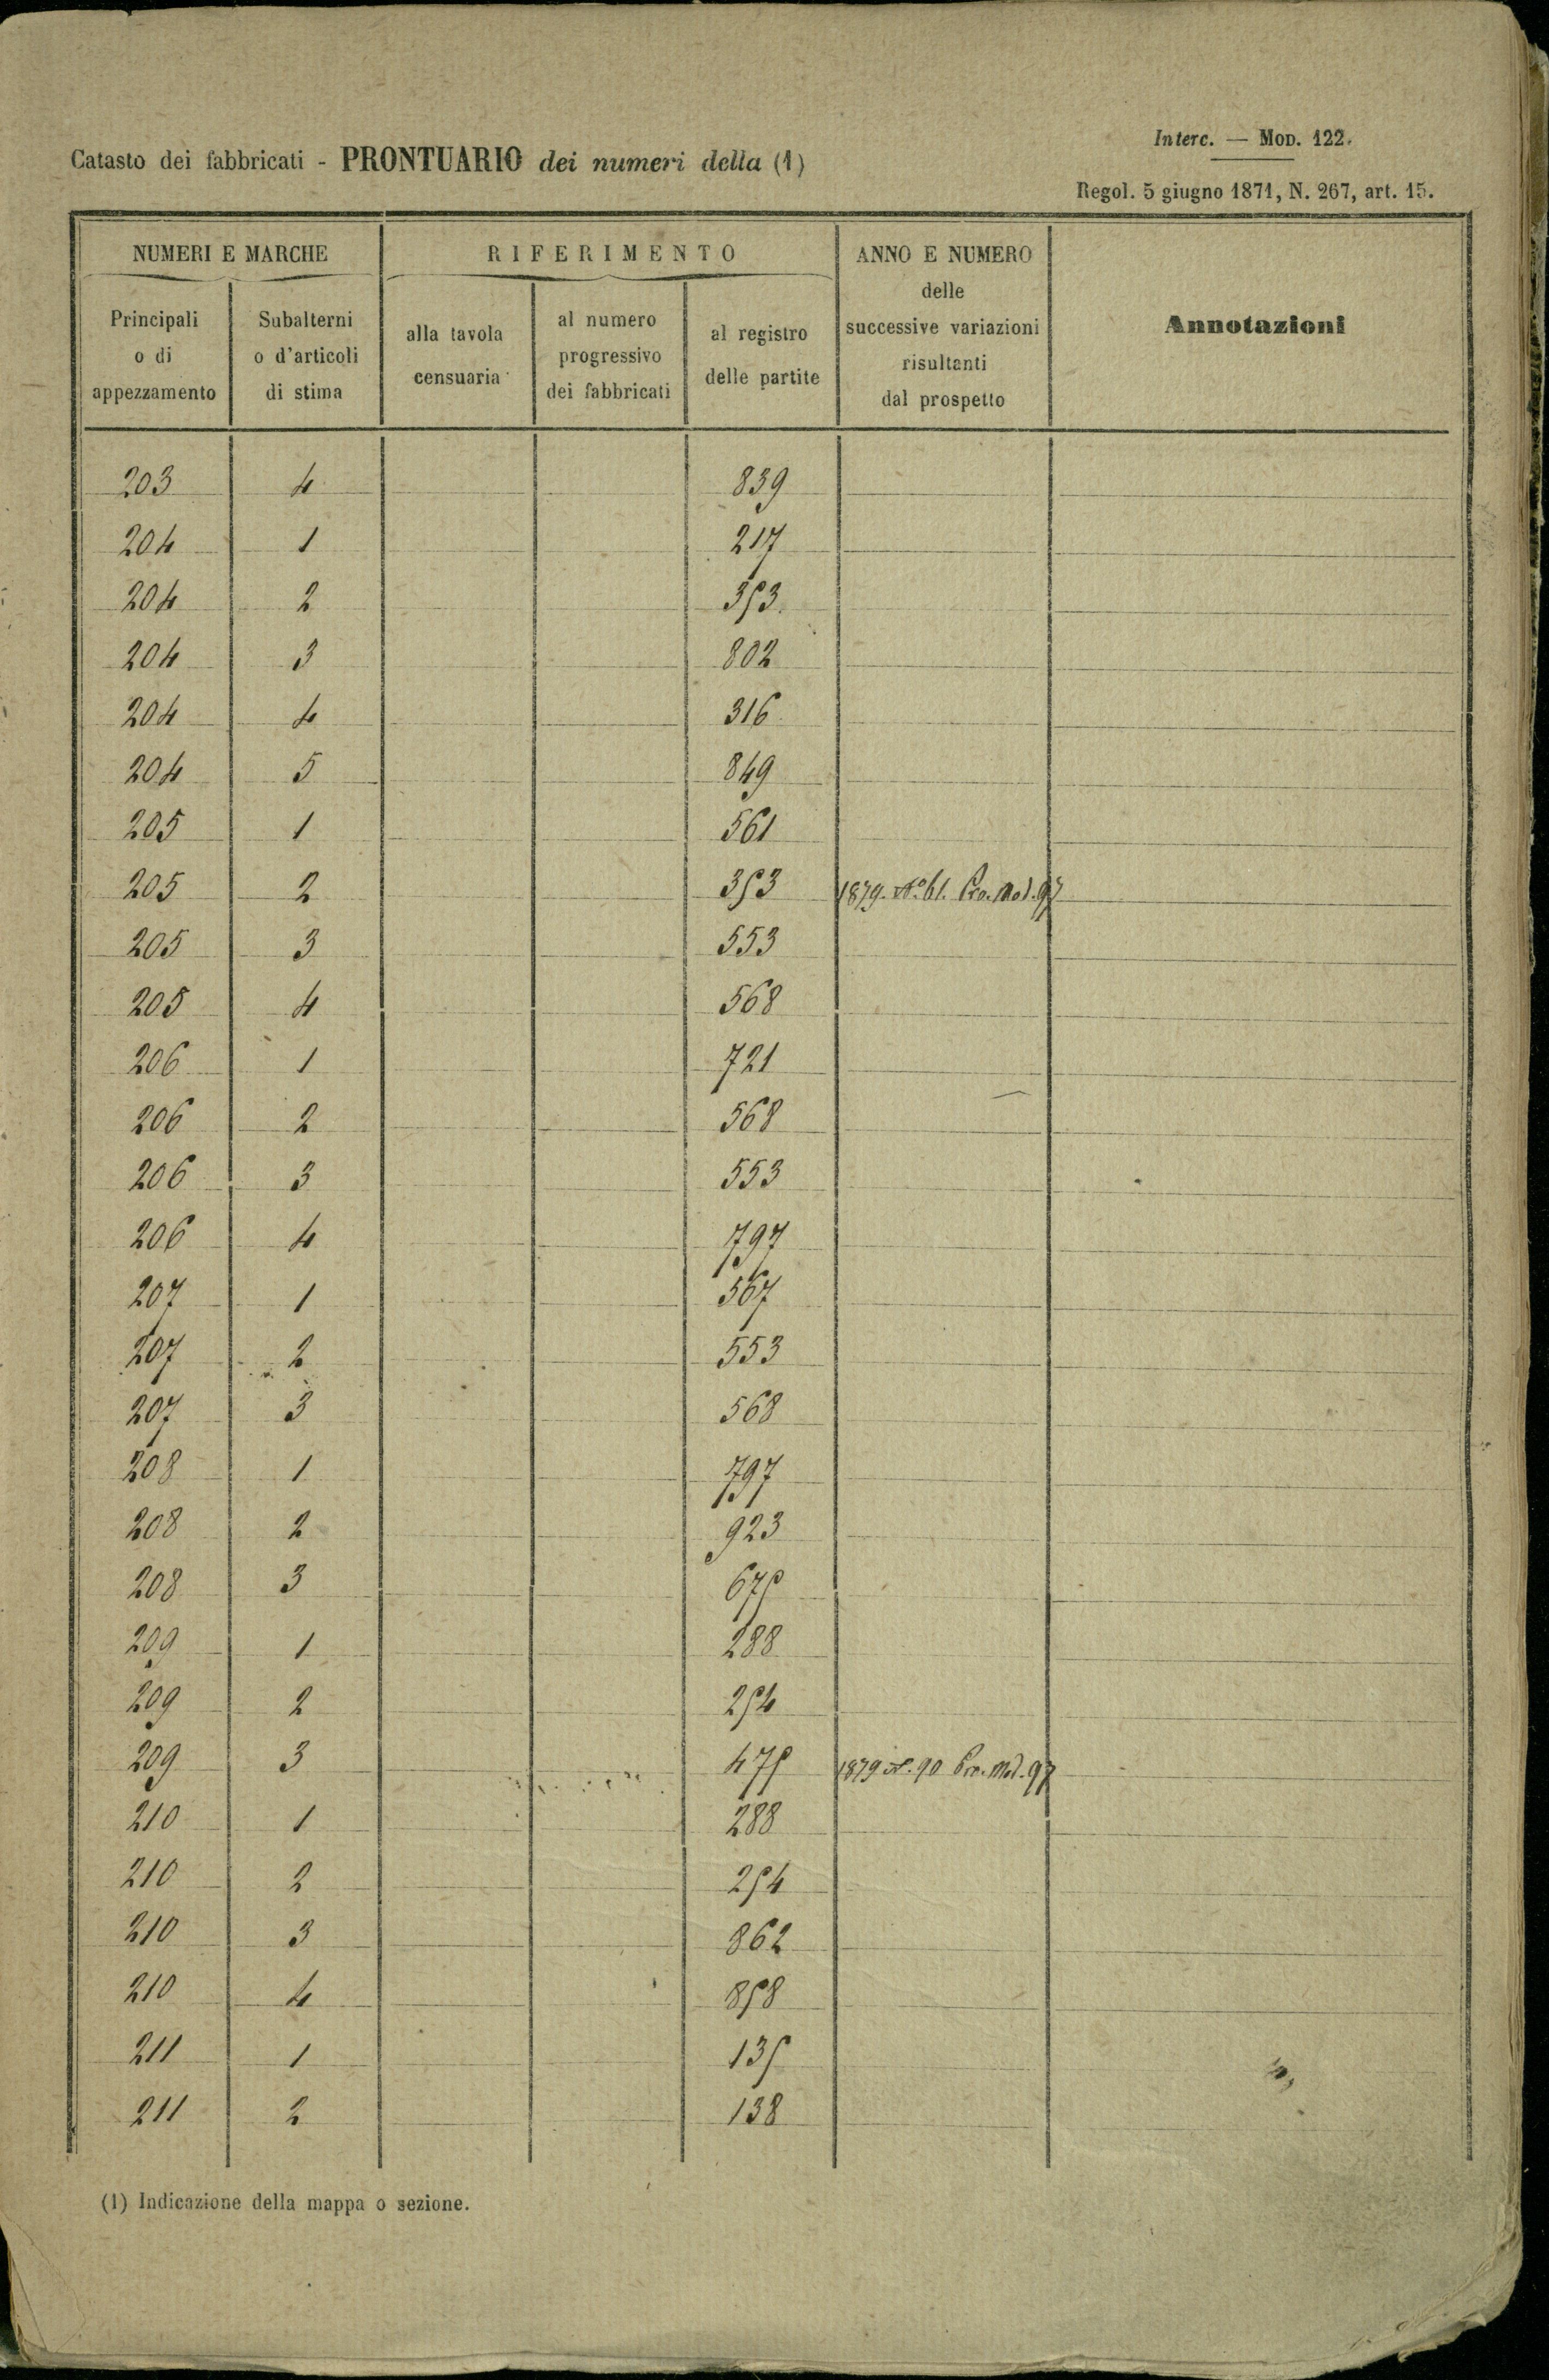 Interc. — Mod. 122.
Catasto dei fabbricati - PRONTUARIO dei numeri della (1)
Regol. 5 giugno 1871, N. 267, art. 15.
NUMERI E MARCHE RIFERIMENTO ANNO E NUMERO delle successive variazioni risultanti dal prospetto Annotazioni
Principali o di appezzamento Subalterni o d'articoli di stima alla tavola censuaria al numero progressivo dei fabbricati al registro delle partite
203 4 839
204 1 217
204 2 353
204 3 802
204 4 316
204 5 849
205 1 561
205 2 353 1879. N.º 61. Pro. Mod. 97
205 3 553
205 4 568
206 1 721
206 2 568
206 3 553
206 4 797
207 1 567
207 2 553
207 3 568
208 1 797
208 2 923
208 3 675
209 1 288
209 2 254
209 3 475 1879 N. 90 Pro. Mod. 97
210 1 288
210 2 254
210 3 862
210 4 858
211 1 135
211 2 138
(1) Indicazione della mappa o sezione.